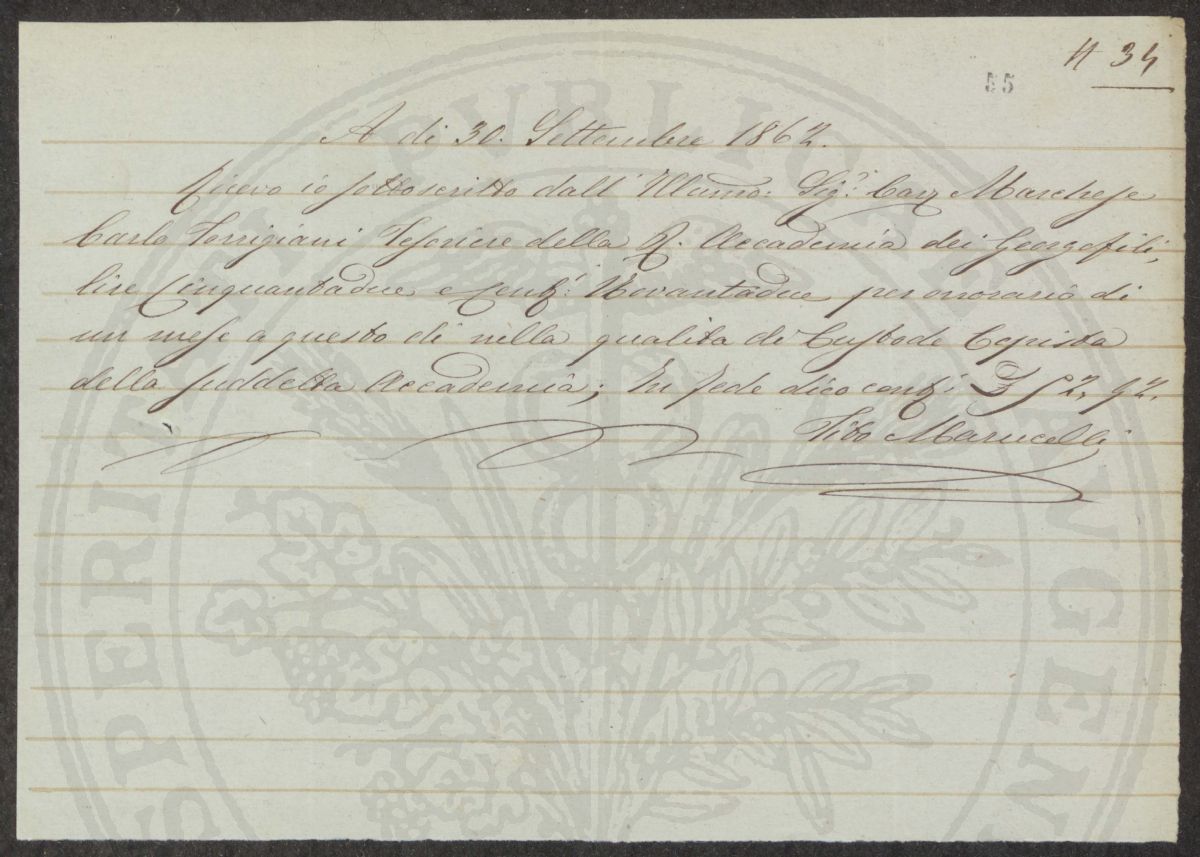 N 34
55
A di 30. Settembre 1862.
Ricevo io sottoscritto dall' Illumo: Sigr. Cav Marchese
Carlo Torrigiani Tesoriere della R. Accademia dei Georgofili,
lire Cinquantadue e Cent: Novantadue per onorario di
un mese a questo di nella qualita di Custode Copista
della suddetta Accademia; In fede dico cent: £ 52, 92.
Tito Marucelli
PERITATI PVBLICAE AVGEN